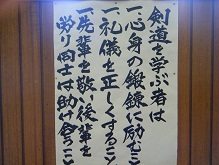 剣道を学ぶ者は
一心身の鍛錬に励むこと
一礼儀を正しくすること
一先輩を敬い後輩を
労り同士は助け合うこと